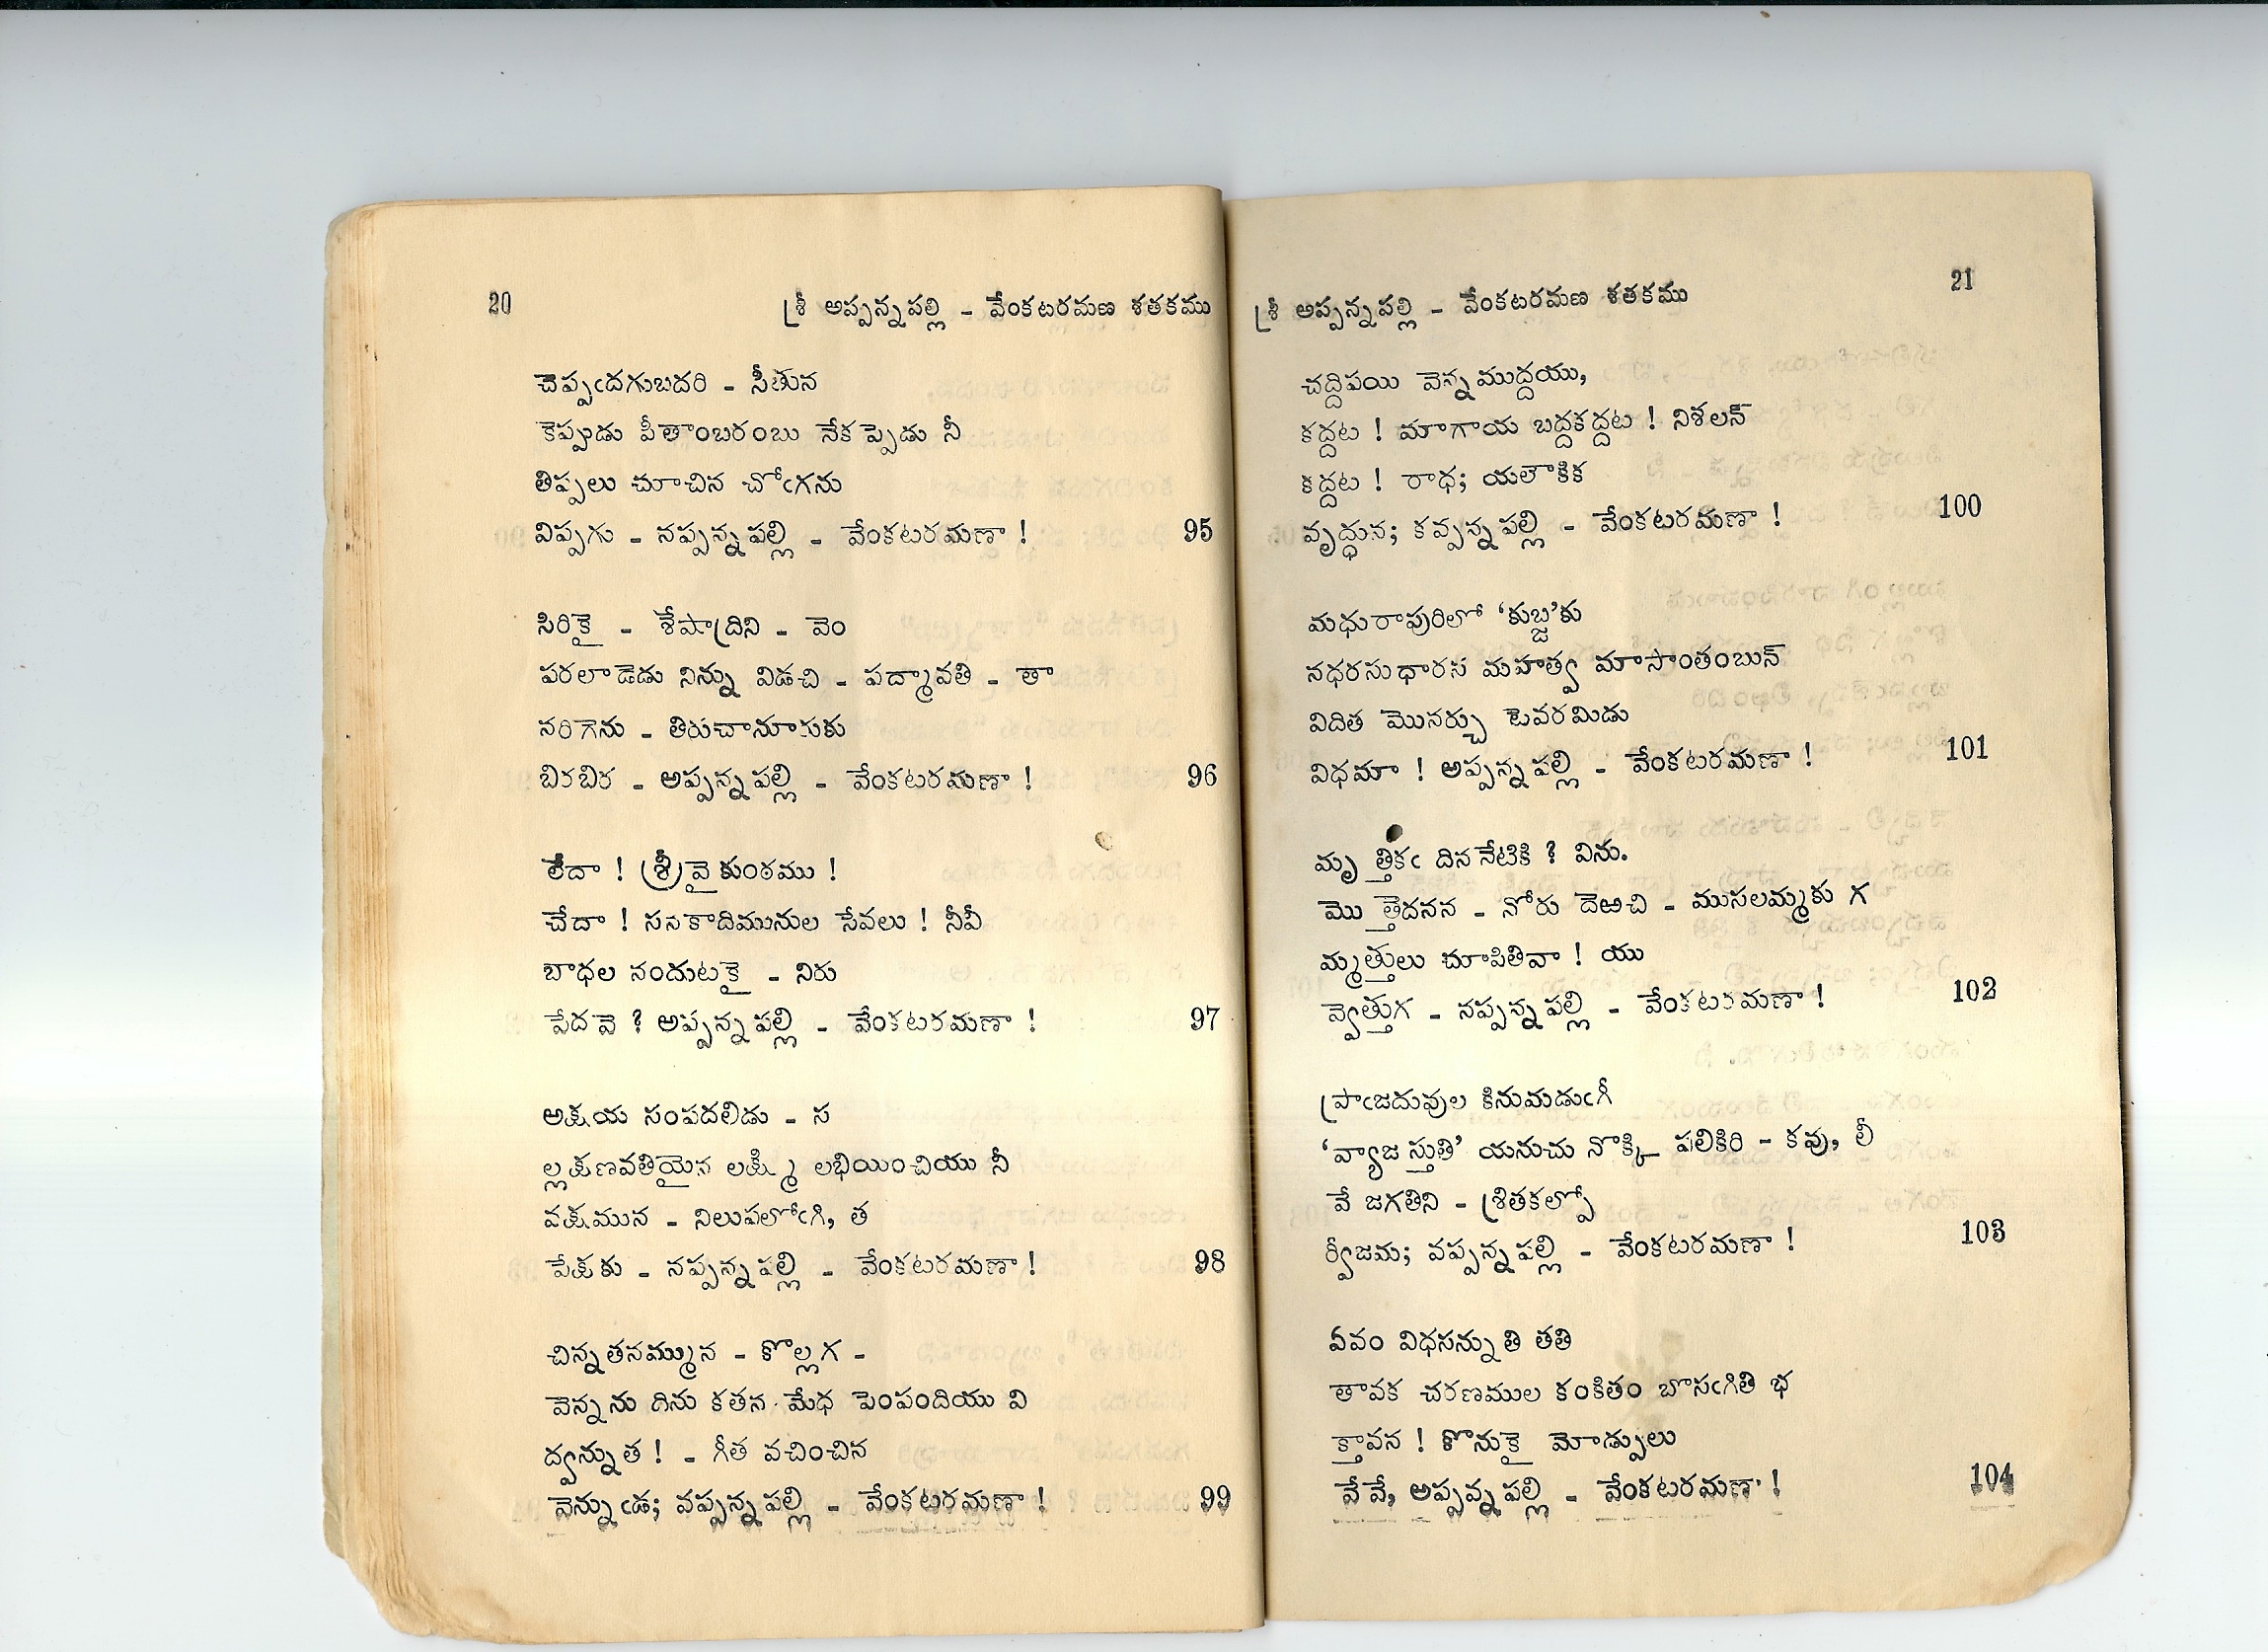 20
శ్రీ అప్పన్నపల్లి - వేంకటరమణ శతకము
చెప్పఁదగుబదరి - సీతున
కెప్పుడు పీతాంబరంబు నేకప్పెడు నీ
తిప్పలు చూచిన చోఁగను
విప్పగు - నప్పన్నపల్లి - వేంకటరమణా ! 95
సిరికై - శేషాద్రిని - వెం
పరలాడెడు నిన్ను విడచి - పద్మావతి - తా
నరిగెను - తిరుచానూరుకు
బిరబిర - అప్పన్నపల్లి - వేంకటరమణా ! 96
లేదా ! శ్రీవైకుంఠము !
చేదా ! సనకాదిమునుల సేవలు ! నీవీ
బాధల నందుటకై - నిరు
పేదవె ? అప్పన్నపల్లి - వేంకటరమణా ! 97
అక్షయ సంపదలిడు - స
ల్లక్షణవతియైన లక్ష్మి లభియించియు నీ
వక్షమున - నిలుపలోఁగి, త
పేక్షకు - నప్పన్నపల్లి - వేంకటరమణా ! 98
చిన్నతనమ్మున - కొల్లగ -
వెన్నను దిను కతన మేధ పెంపందియు వి
ద్వన్నుత ! - గీత వచించిన
వెన్నుఁడ; వప్పన్నపల్లి - వేంకటరమణా ! 99
శ్రీ అప్పన్నపల్లి - వేంకటరమణ శతకము
21
చద్దిపయి వెన్నముద్దయు,
కద్దట ! మాగాయ బద్దకద్దట ! నిశలన్
కద్దట ! రాధ; యలౌకిక
వృద్ధున; కవ్పన్నపల్లి - వేంకటరమణా ! 100
మధురాపురిలో ‘కుబ్జ’కు
నధరసుధారస మహత్వ మాసాంతంబున్
విదిత మొనర్చు టెవరమిడు
విధమా ! అప్పన్నపల్లి - వేంకటరమణా ! 101
మృత్తికఁ దిననేటికి ? విను.
మొత్తెదనన - నోరు దెఱచి - ముసలమ్మకు గ
మ్మత్తులు చూపితివా ! యు
వ్వెత్తుగ - నప్పన్నపల్లి - వేంకటరమణా ! 102
ప్రాఁజదువుల కినుమడుఁగీ
‘వ్యాజస్తుతి’ యనుచు నొక్కి పలికిరి - కవు, లీ
వే జగతిని - శ్రితకల్పో
ర్వీజమ; వప్పన్నపల్లి - వేంకటరమణా ! 103
ఏవం విధసన్నుతి తతి
తావక చరణముల కంకితం బొసఁగితి భ
క్తావన ! కొనుకై మోడ్పులు
వేవే, అప్పన్నపల్లి - వేంకటరమణా ! 104